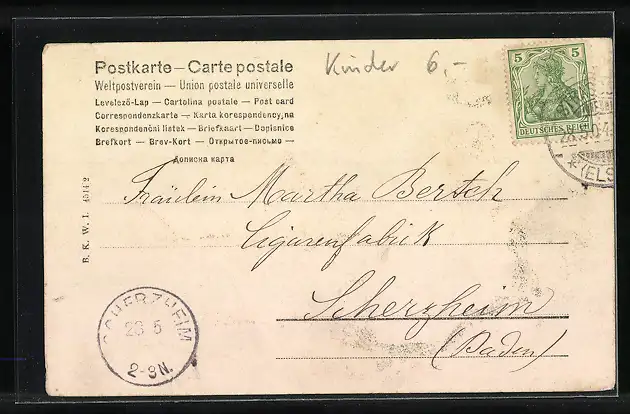 Postkarte — Carte postale
Weltpostverein — Union postale universelle
Levelező-Lap — Cartolina postale — Post card
Correspondenzkarte — Karta korespondency,na
Korespondenční listek — Briefkaart — Dopisnice
Brefkort — Brev-Kort — Открытое-письмо —
Дописна карта
Kinder 6,-
5 5
DEUTSCHES REICH
(ELS
Fräulein Martha Bertsch
Cigarrenfabrick
Scherzheim
(Baden)
B. K. W. I. 4514-2
SCHERZHEIM
23 5
2-3N.